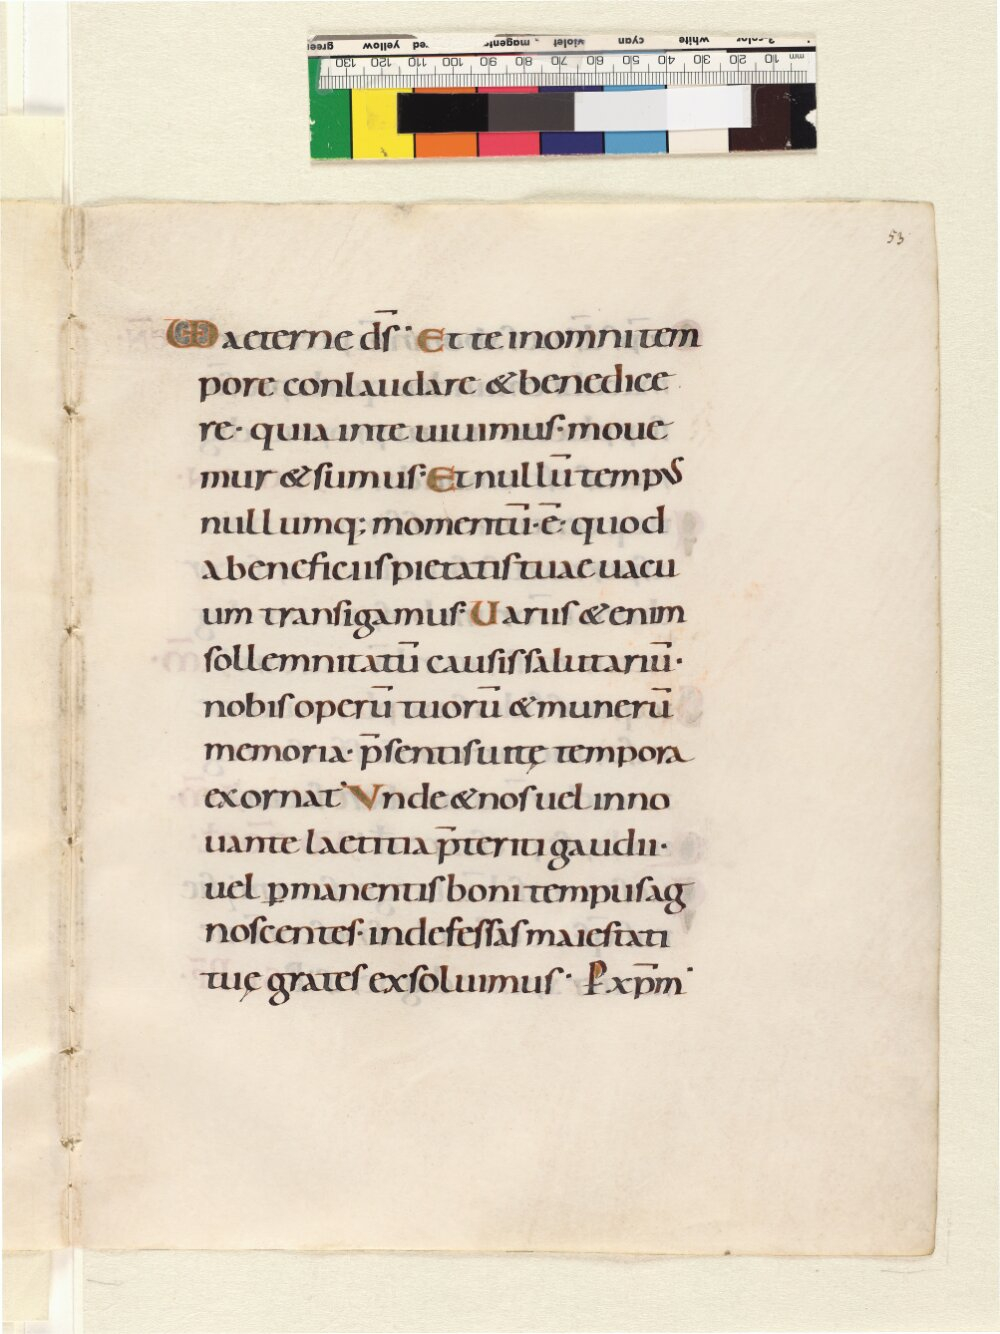 green yellow red magenta violet cyan white 3-color
130 120 110 100 90 80 70 60 50 40 30 20 10 mm
53
UD aeterne d̅s· Et te inomnitem
pore conlaudare & benedice
re· quia inte uiuimus· moue
mur & sumus· Et nullū tempus
nullumq; momentū· ē· quod
a beneficiis pietatis tuae uacu
um transigamus· Uariis & enim
sollemnitatū causis salutariū·
nobis operū tuorū & munerū
memoria· p̄sentis uitę tempora
exornat· Vnde & nos uel inno
uante laetitia p̄teriti gaudii·
uel ꝑmanentis boni tempus ag
noscentes· indefessas maiestati
tuę grates exsoluimus· P xp̄m·